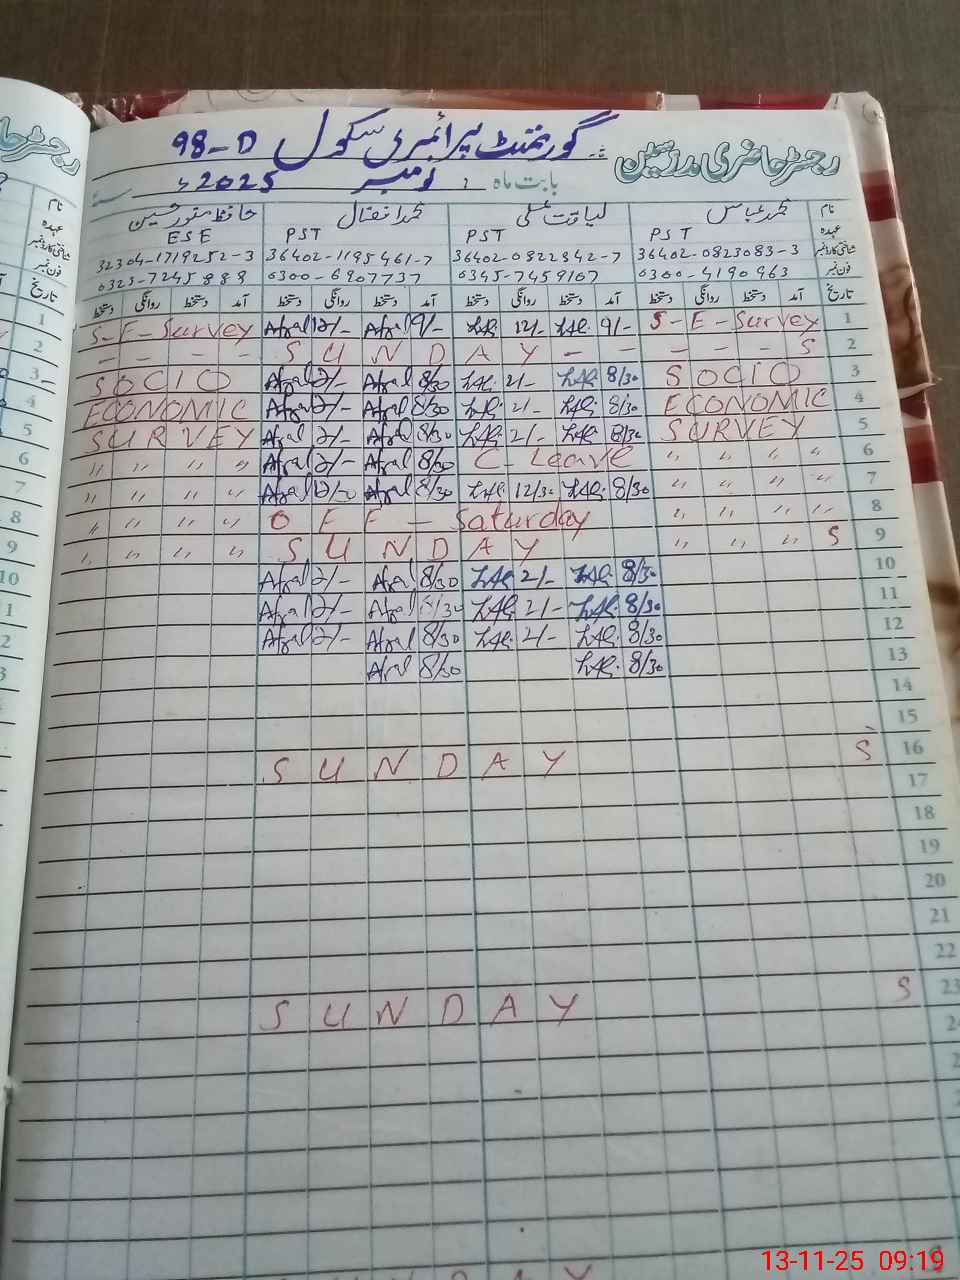 رجسٹر حاضری مدرسین گورنمنٹ پرائمری سکول 98-D
بابت ماہ نومبر 2025ء
نام محمد عباس لیاقت علی محمد افضال حافظ منور حسین
عہدہ PST PST PST ESE
شناختی کارڈ نمبر 36402-0823083-3 36402-0822842-7 36402-1195461-7 32304-1719252-3
فون نمبر 0300-4190463 0345-7459107 0300-6907737 0325-7245888
تاریخ آمد دستخط روانگی دستخط آمد دستخط روانگی دستخط آمد دستخط روانگی دستخط آمد دستخط روانگی دستخط
S-E-Survey Afzal 12/- Afzal 9/- LAli 12/- LAli 9/- S-E-Survey 1
- - - - S U N D A Y - - - - - S 2
SOCIO Afzal 2/- Afzal 8/30 LAli 2/- LAli 8/30 SOCIO 3
ECONOMIC Afzal 2/- Afzal 8/30 LAli 2/- LAli 8/30 ECONOMIC 4
SURVEY Afzal 2/- Afzal 8/30 LAli 2/- LAli 8/30 SURVEY 5
" " " " Afzal 2/- Afzal 8/30 C-Leave " " " " 6
" " " " Afzal 12/30 Afzal 8/30 LAli 12/30 LAli 8/30 " " " " 7
" " " " OFF - Saturday " " " " 8
" " " " S U N D A Y " " " " S 9
Afzal 2/- Afzal 8/30 LAli 2/- LAli 8/30 10
Afzal 2/- Afzal 8/30 LAli 2/- LAli 8/30 11
Afzal 2/- Afzal 8/30 LAli 2/- LAli 8/30 12
Afzal 8/30 LAli 8/30 13
14
15
S U N D A Y S 16
17
18
19
20
21
22
S U N D A Y S 23
24
13-11-25 09:19